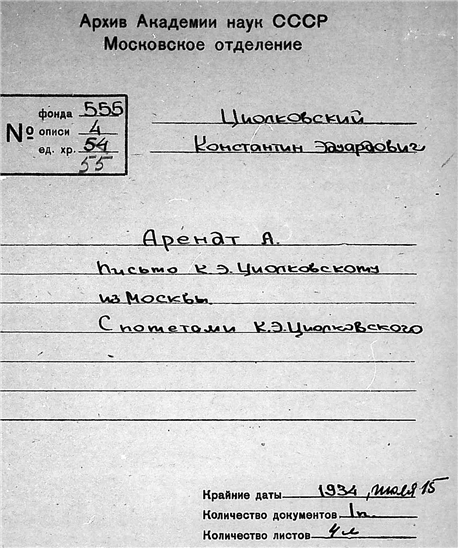 Архив Академии наук СССР
Московское отделение
№
фонда 555
описи 4
ед. хр. 54
55
Циолковский
Константин Эдуардович
Арендт А.
Письмо К.Э.Циолковскому
из Москвы.
С пометами К.Э.Циолковского
Крайние даты 1934, июля 15
Количество документов 1п.
Количество листов 4л